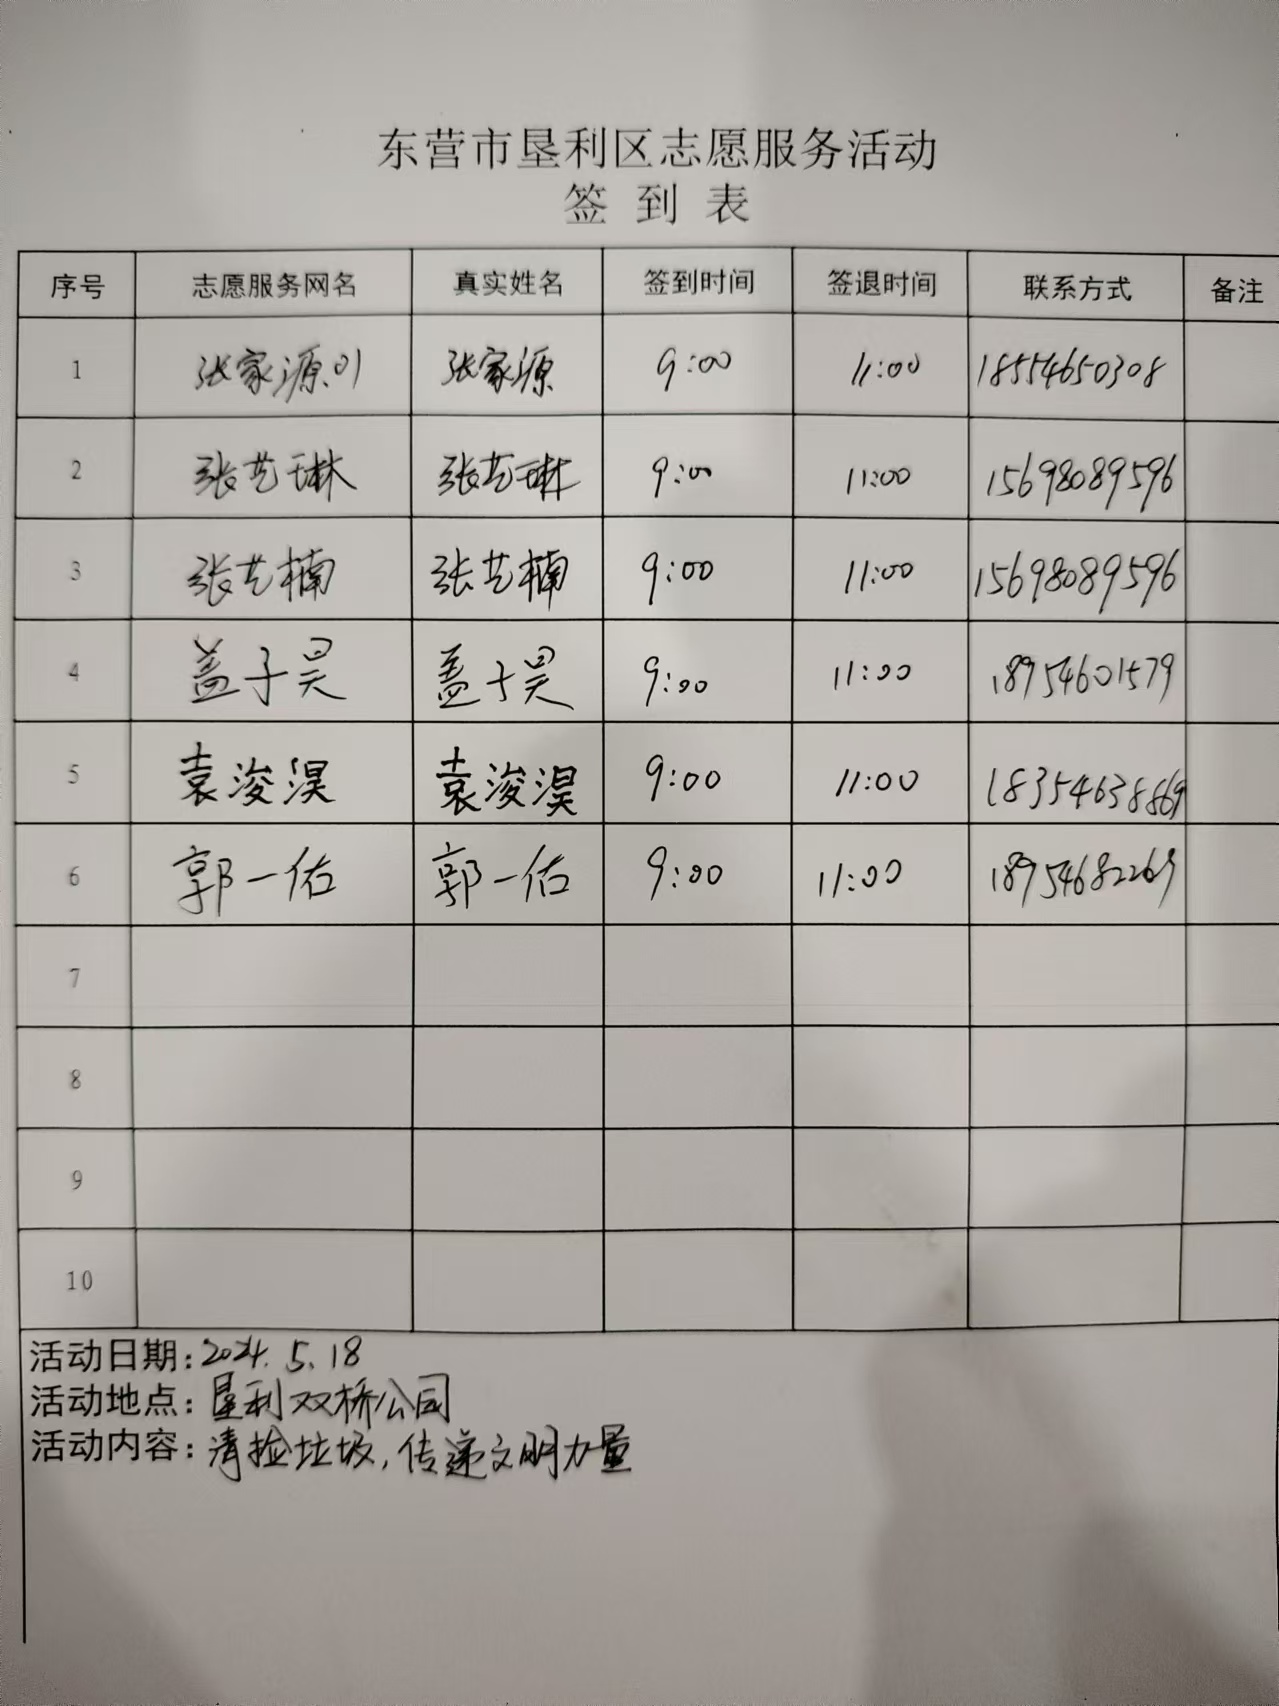 东营市垦利区志愿服务活动
签 到 表
序号 志愿服务网名 真实姓名 签到时间 签退时间 联系方式 备注
1 张家源01 张家源 9:00 11:00 18554650308
2 张艺琳 张艺琳 9:00 11:00 15698089596
3 张艺楠 张艺楠 9:00 11:00 15698089596
4 盖子昊 盖子昊 9:00 11:00 18954601579
5 袁浚淏 袁浚淏 9:00 11:00 18354638869
6 郭一佑 郭一佑 9:00 11:00 18954682269
7
8
9
10
活动日期:2024.5.18
活动地点:垦利双桥公司
活动内容:清捡垃圾,传递文明力量